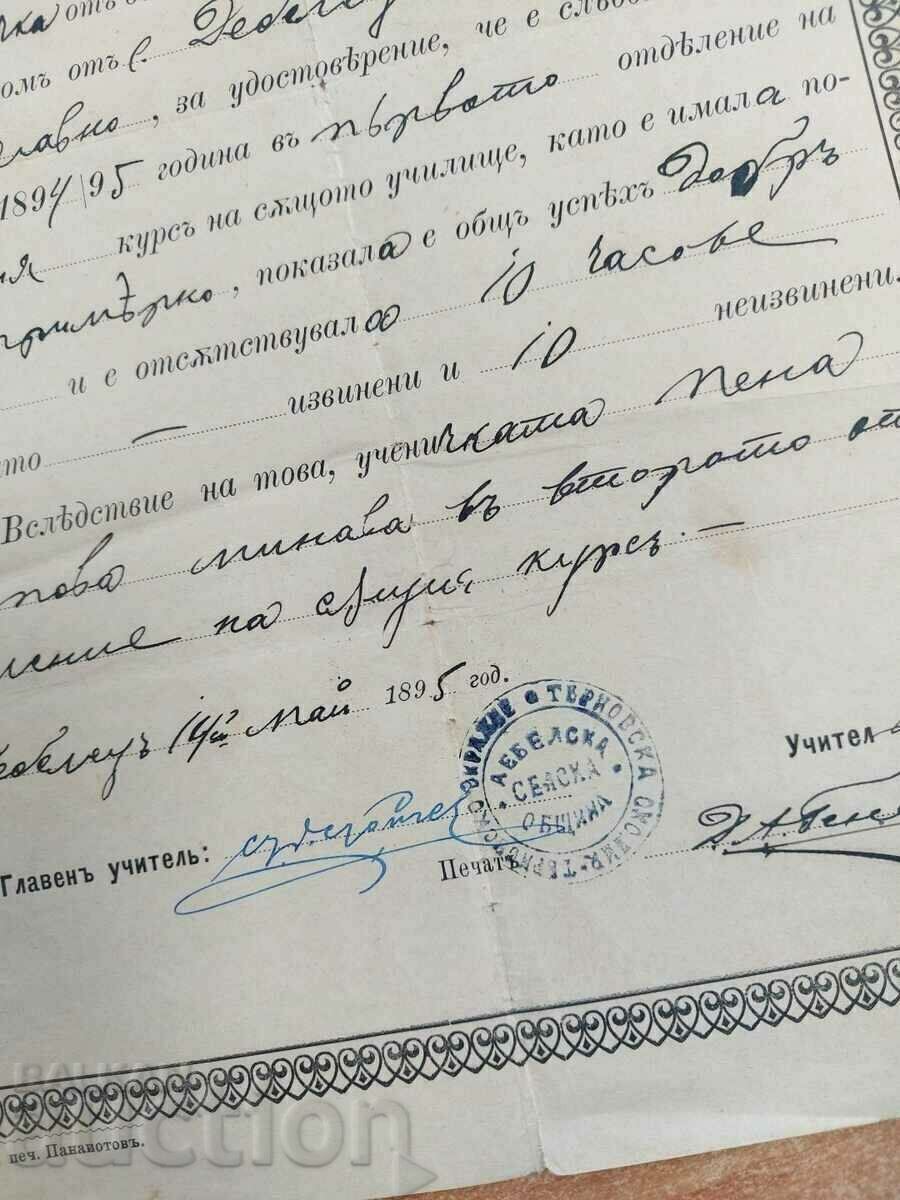 чка отъ
омъ отъ с. Дебелец
славно, за удостовѣрение, че е слѣд
1894/95 година въ първото отдѣление на
ия курсъ на сѫщото училище, като е имала по-
примѣрно, показала е общъ успѣхъ добръ
и е отсѫтствувала 10 часове
ито — извинени и 10 неизвинени.
Вслѣдствие на това, ученичката Пена
пова минава въ второто от
ление на сѫщия курсъ. —
Дебелецъ 14й май 1895 год.
Учител
Главенъ учитель:
Печатъ
ТЕРНОВСКА ОКОЛИЯ-ТЕРНОВСКО ОКРЪЖИЕ
ДЕБЕЛСКА
СЕЛСКА
ОБЩИНА
печ. Панайотовъ.
BALKAN
аукцион